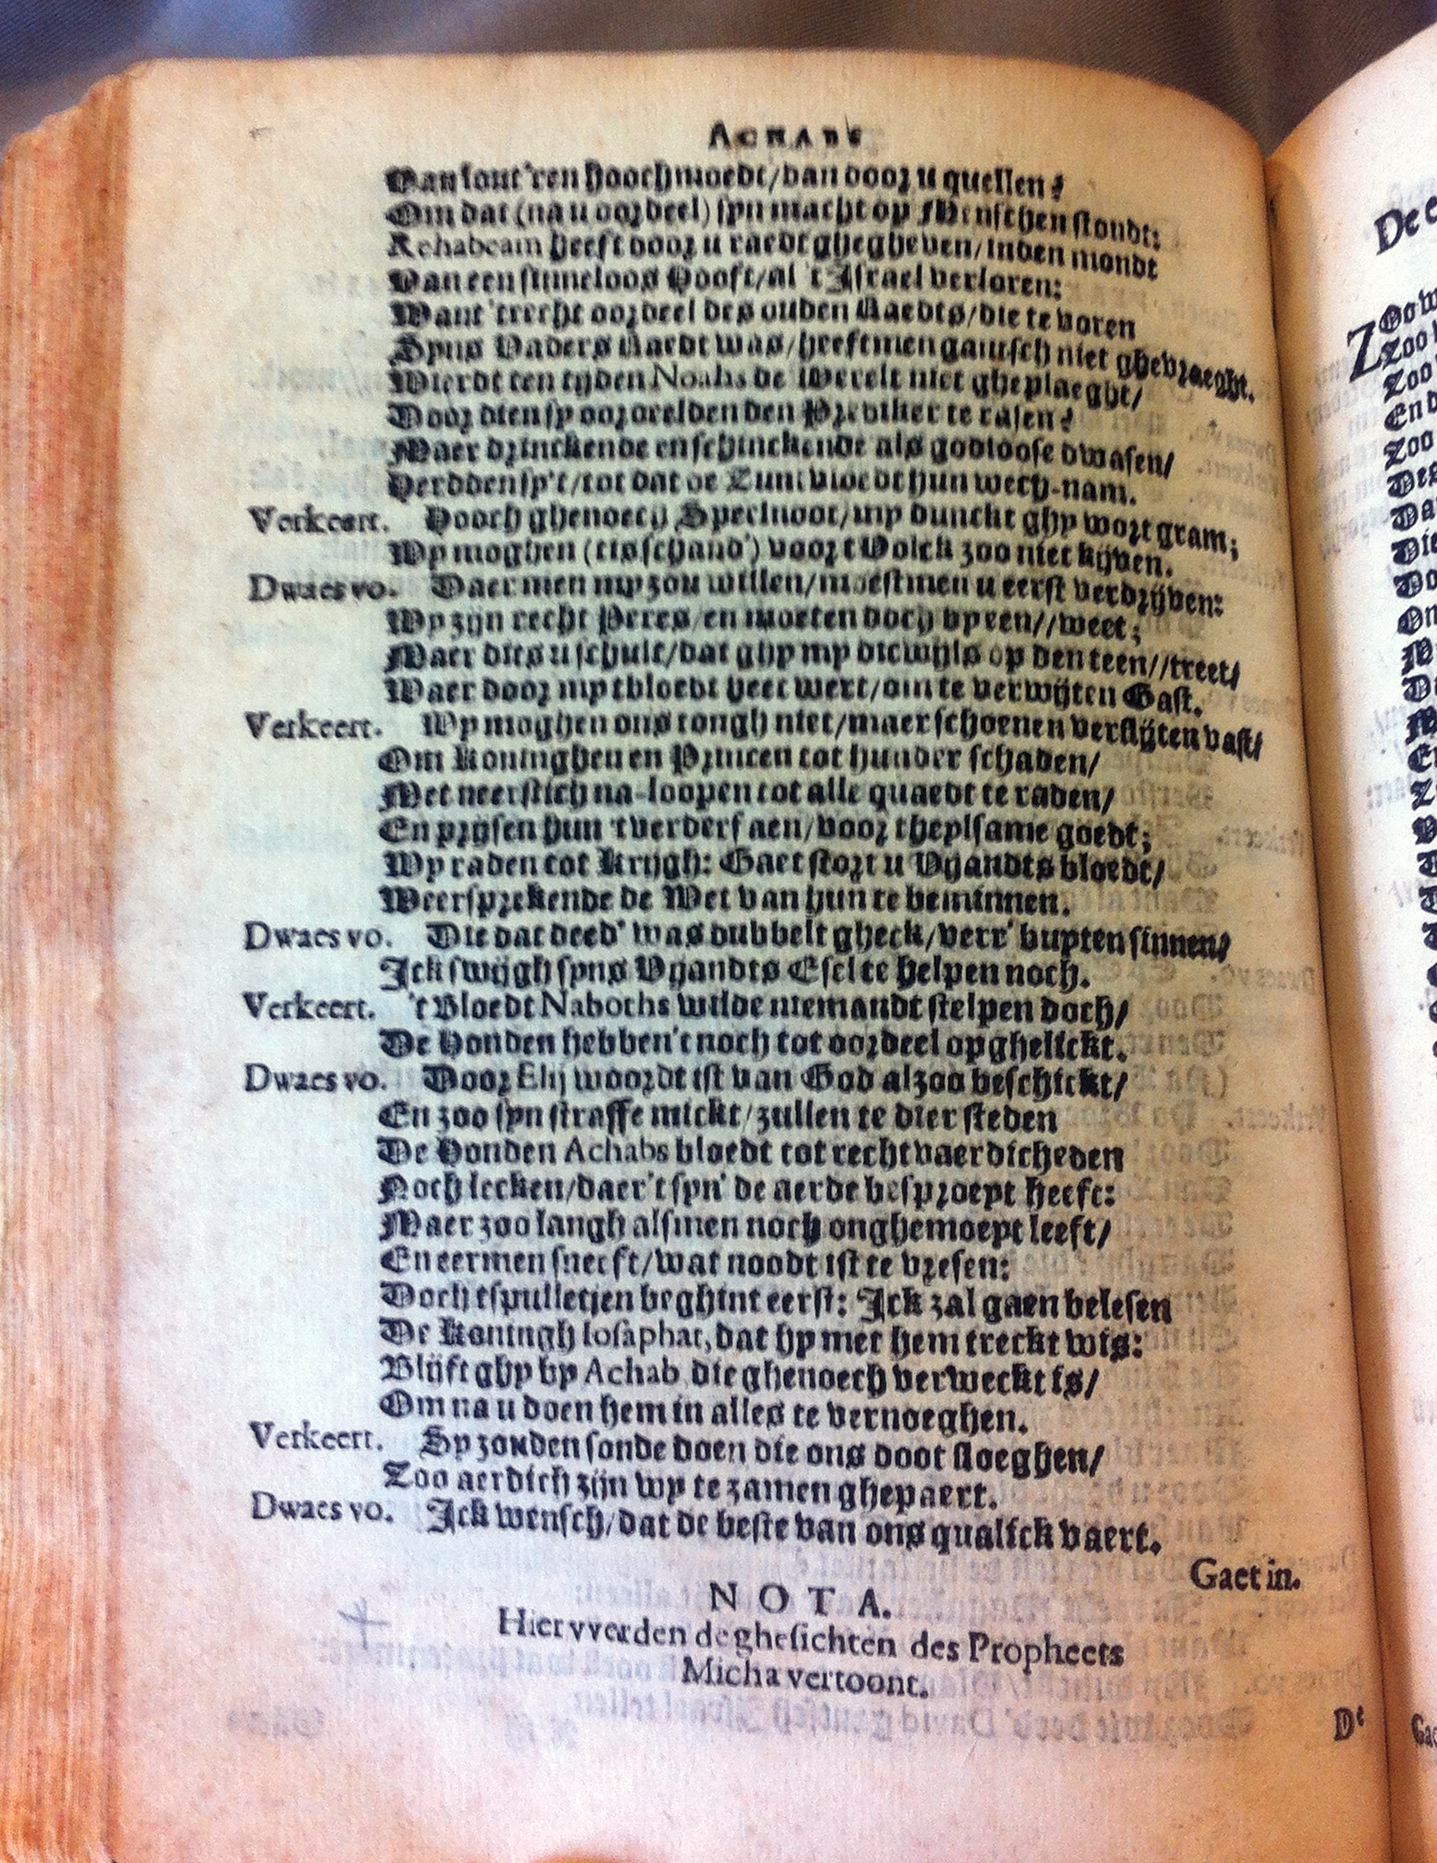 ACHABS
Van sout 'ren hoochmoedt/dan door u quellen?
Om dat (na u oordeel) syn macht op Menschen stondt:
Rehabeam heeft door u raedt ghegheven/inden mondt
Van een sinneloos Hooft/al 't Israel verloren:
Want 'trecht oordeel des ouden Raedts/die te voren
Syns Vaders Raedt was/heeftmen gantsch niet ghevraeght.
Wierdt ten tyden Noahs de werelt niet gheplaeght/
Door dien sy oordeelden den Prediker te rasen?
Maer drinckende en schinckende als godloose dwasen/
Herdden sy't/tot dat de Zuntvloedt hun wech-nam.
Verkeert. Hooch ghenoech Speelnoot/my dunckt ghy wort gram;
Wy moghen (tis schand') voor t Volck zoo niet kijven.
Dwaes vo. Daer men my zou willen/moestmen u eerst verdrijven:
Wy zijn recht Peres/en moeten doch by een//weet;
Maer dits u schult/dat ghy my dicwijls op den teen//treet/
Waer door my tbloedt heet wert/om te verwijten Gast.
Verkeert. Wy moghen ons tongh niet/maer schoenen verslijten vast/
Om Koninghen en Princen tot hunder schaden/
Met neerstich na-loopen tot alle quaedt te raden/
En prysen hun tverderf aen/voor theylsame goedt;
Wy raden tot Krijgh: Gaet stort u Vyandts bloedt/
Weersprekende de Wet van hun te beminnen.
Dwaes vo. Die dat deed' was dubbelt gheck/verr' buyten sinnen/
Ick swijgh syns Vyandts Esel te helpen noch.
Verkeert. 't Bloedt Naboths wilde niemandt stelpen doch/
De Honden hebben't noch tot oordeel opghelickt.
Dwaes vo. Door Elij woordt ist van God alzoo beschickt/
En zoo syn straffe mickt/zullen te dier steden
De Honden Achabs bloedt tot rechtvaerdicheden
Noch lecken/daer't syn' de aerde besproeyt heeft:
Maer zoo langh alsmen noch onghemoeyt leeft/
En eermen sneeft/wat noodt ist te vresen:
Doch tspulletjen beghint eerst: Ick zal gaen belesen
De Koningh Iosaphat, dat hy met hem treckt wis:
Blijft ghy by Achab die ghenoech verweckt is/
Om na u doen hem in alles te vernoeghen.
Verkeert. Sy zouden sonde doen die ons doot sloeghen/
Zoo aerdich zijn wy te zamen ghepaert.
Dwaes vo. Ick wensch/dat de beste van ons qualick vaert.
Gaet in.
NOTA.
Hier vverden de ghesichten des Propheets
Micha vertoont.
De